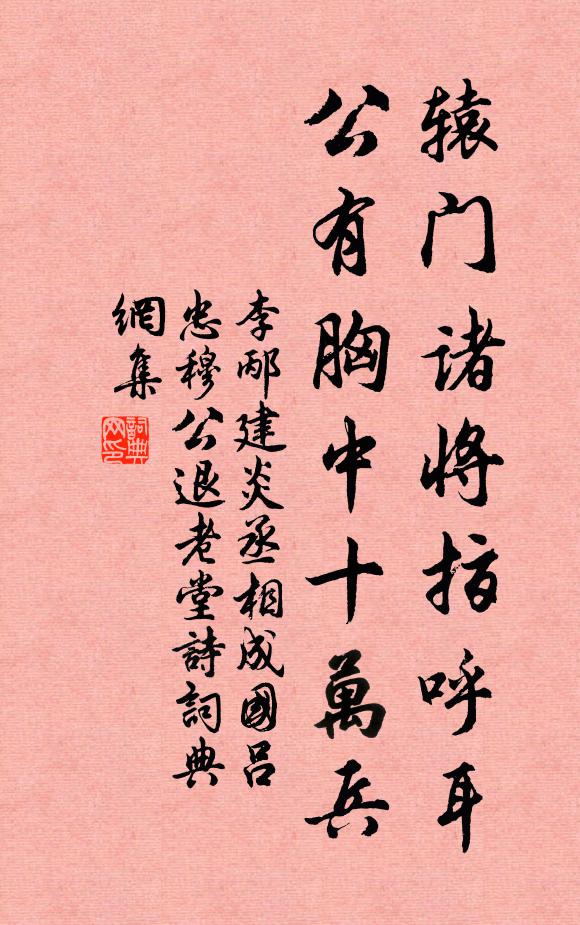 辕门诸将指呼耳
公有胸中十萬兵
李邴建炎丞相成國吕
忠穆公退老堂詩詞典
網集
詞典
网印